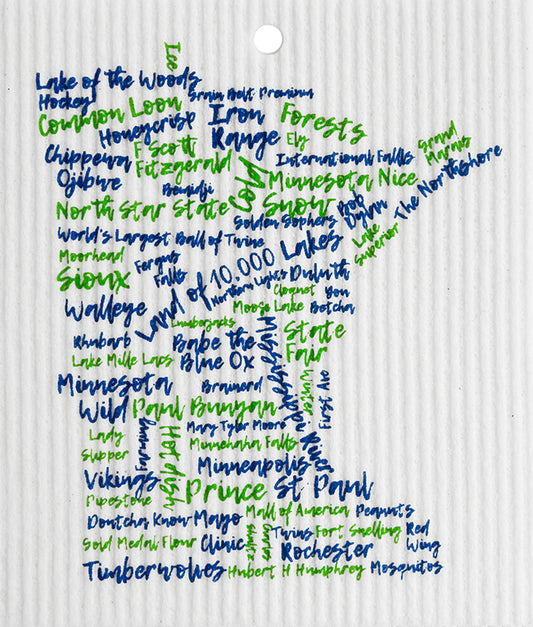 Ice
Lake of the Woods
Hockey
Grain Belt Premium
Common Loon
Iron
Range
Forests
Honeycrisp
Ely
Grand
Marais
Chippewa
F Scott
Fitzgerald
International Falls
The NorthShore
Ojibwe
Bemidji
Joy
Minnesota Nice
North Star State
Snow
Bob
Dylan
Golden Gophers
World's Largest Ball of Twine
Lake
Superior
Moorhead
Fergus
Falls
Land of 10,000 Lakes
Sioux
Northern Lights
Duluth
Cloquet
You
Betcha
Walleye
Moose Lake
Lumberjacks
Mississippi River
State
Fair
Rhubarb
Babe the
Blue Ox
Lake Mille Lacs
Minnesota
Wild
Brainerd
Winter
First Ave
Paul Bunyan
Mary Tyler Moore
Lady
Slipper
Farming
Hotdish
Minnehaha Falls
Minneapolis
Vikings
Prince
St Paul
Pipestone
Dontcha Know
Mayo
Clinic
Mall of America
Peanuts
Gold Medal Flour
Charles
Schultz
Twins
Fort Snelling
Red
Wing
Rochester
Timberwolves
Hubert H Humphrey
Mosquitos